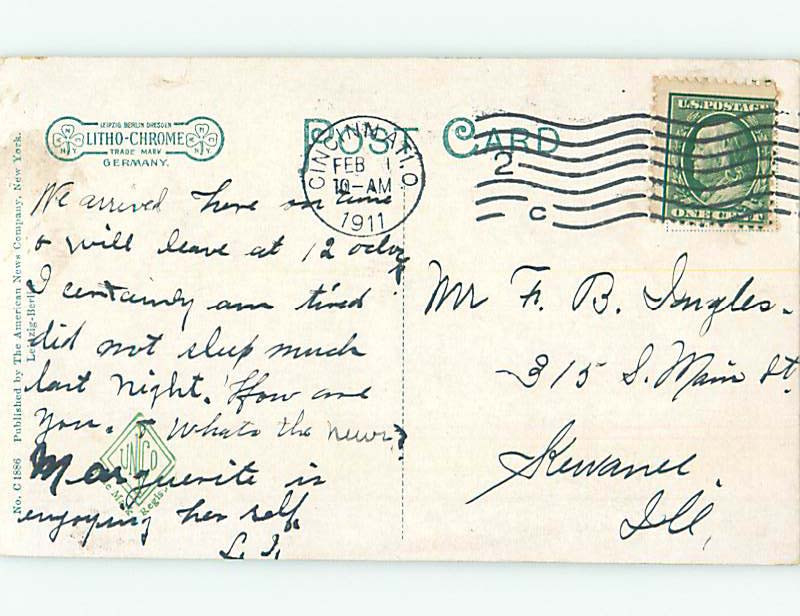 POST CARD
LEIPZIG BERLIN DRESDEN
LITHO-CHROME
TRADE MARK
GERMANY.
No. C 1886 Published by The American News Company, New York.
Leipzig-Berlin
CINCINNATI, O.
FEB 1
10-AM
1911
2
C
U.S. POSTAGE
ONE CENT
We arrived here on time
& will leave at 12 oclock
I certainly am tired
did not sleep much
last night. How are
you. & Whats the news?
Marguerite is
enjoying her self.
L. I.
UNCO
Mr F. B. Ingles.
315 S. Main St
Kewanee.
Ill,